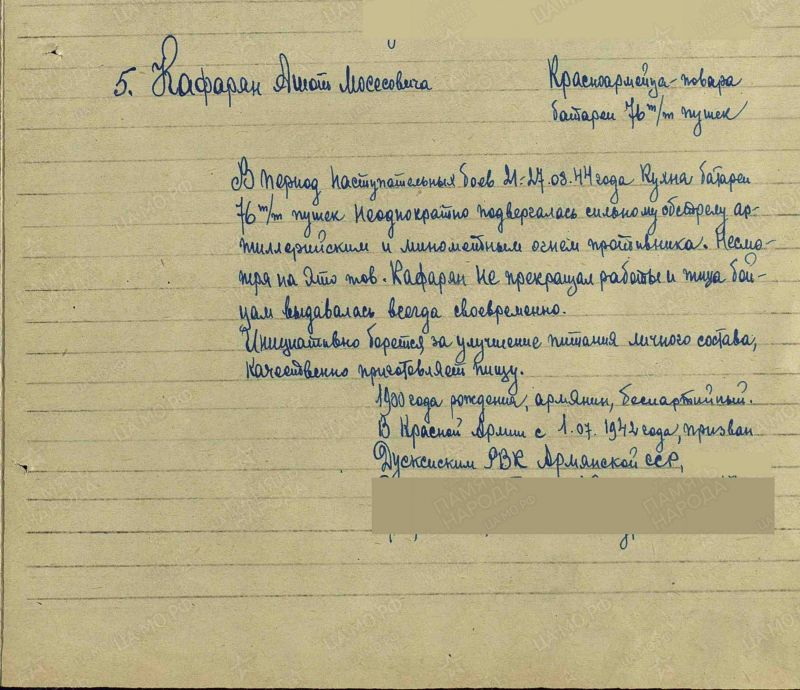 5. Кафарян Ашот Мосесовича
Красноармейца-повара
батареи 76 m/m пушек
В период наступательных боев 21-27.08.44 года Кухна батареи
76 m/m пушек неоднократно подвергалась сильному обстрелу ар-
тиллерийским и минометным огнем противника. Несмо-
тря на это тов. Кафарян не прекращал работы и пища бой-
цам выдавалась всегда своевременно.
Инициативно борется за улучшение питания личного состава,
качественно приготовляет пищу.
1900 года рождения, армянин, беспартийный.
В Красной Армии с 1.07.1942 года, призван
РВК Армянской ССР,
ПАМЯТЬ НАРОДА
ЦАМО.РФ